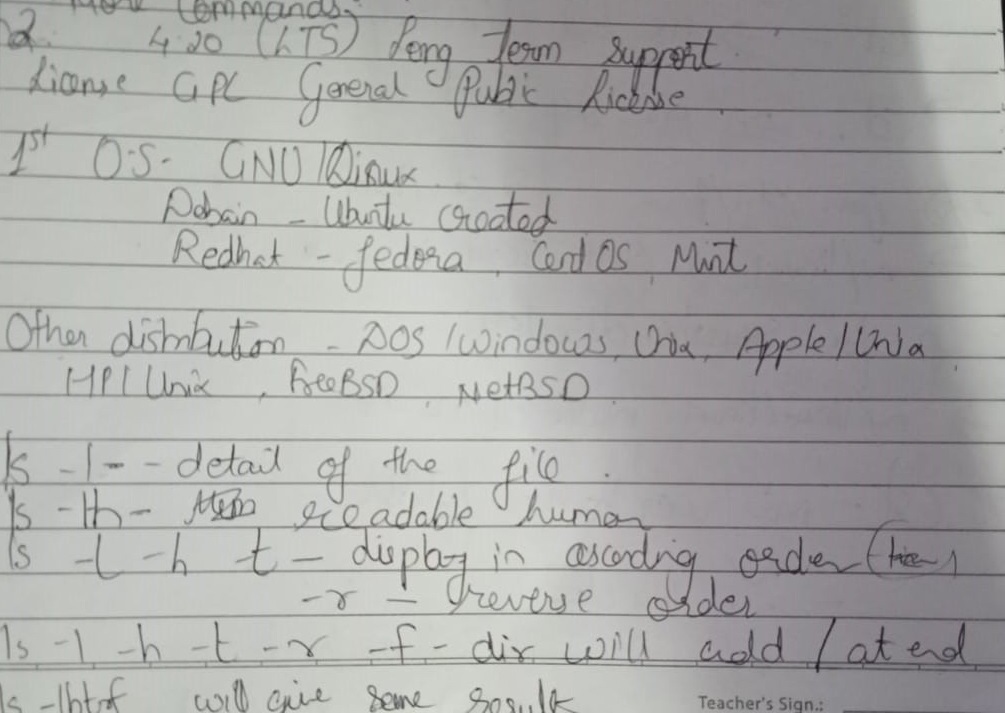 more Commands.
2. 4.20 (LTS) Long Term support
License GPL General Public License
1st O.S. GNU/Linux
Debain - Ubuntu created
Redhat - fedora, Cent OS, Mint
Other distribution - DOS/windows, Unix, Apple/Unix
HP/Unix, FreeBSD, NetBSD.
ls -l-- detail of the file.
ls -lh- readable human
ls -l -h t - display in ascending order (time)
-r - reverse order
ls -l -h -t -r -f - dir will add / at end
ls -lhtrf will give same result
Teacher's Sign.: